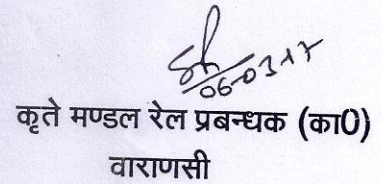 06-03-17
कृते मण्डल रेल प्रबन्धक (का0)
वाराणसी